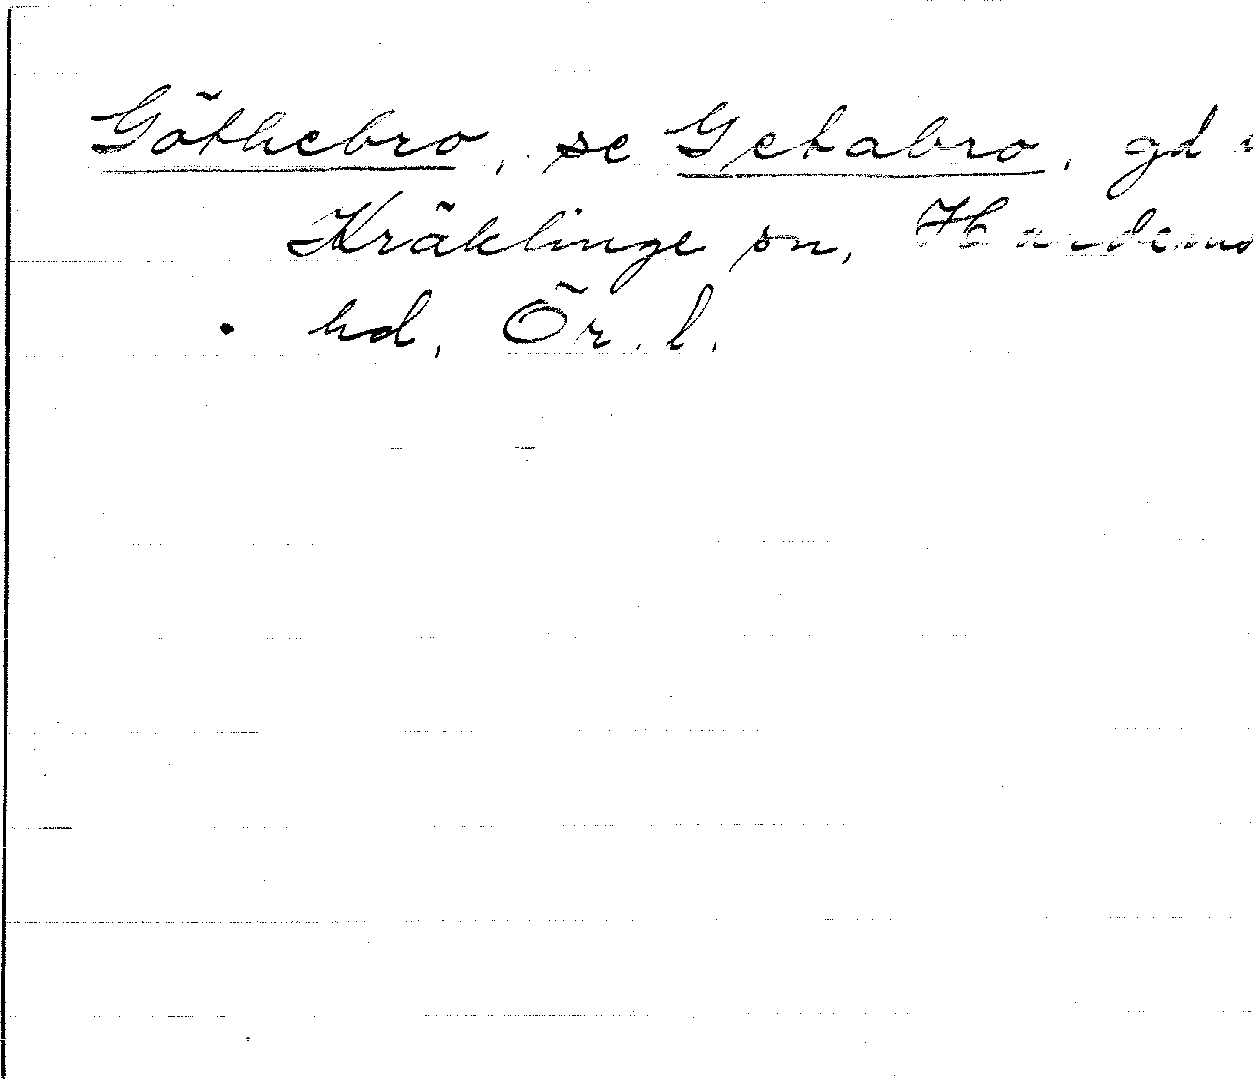 Göthebro, se Getabro, gd i
Kräklinge sn, Hardemo
hd, Ör. l.